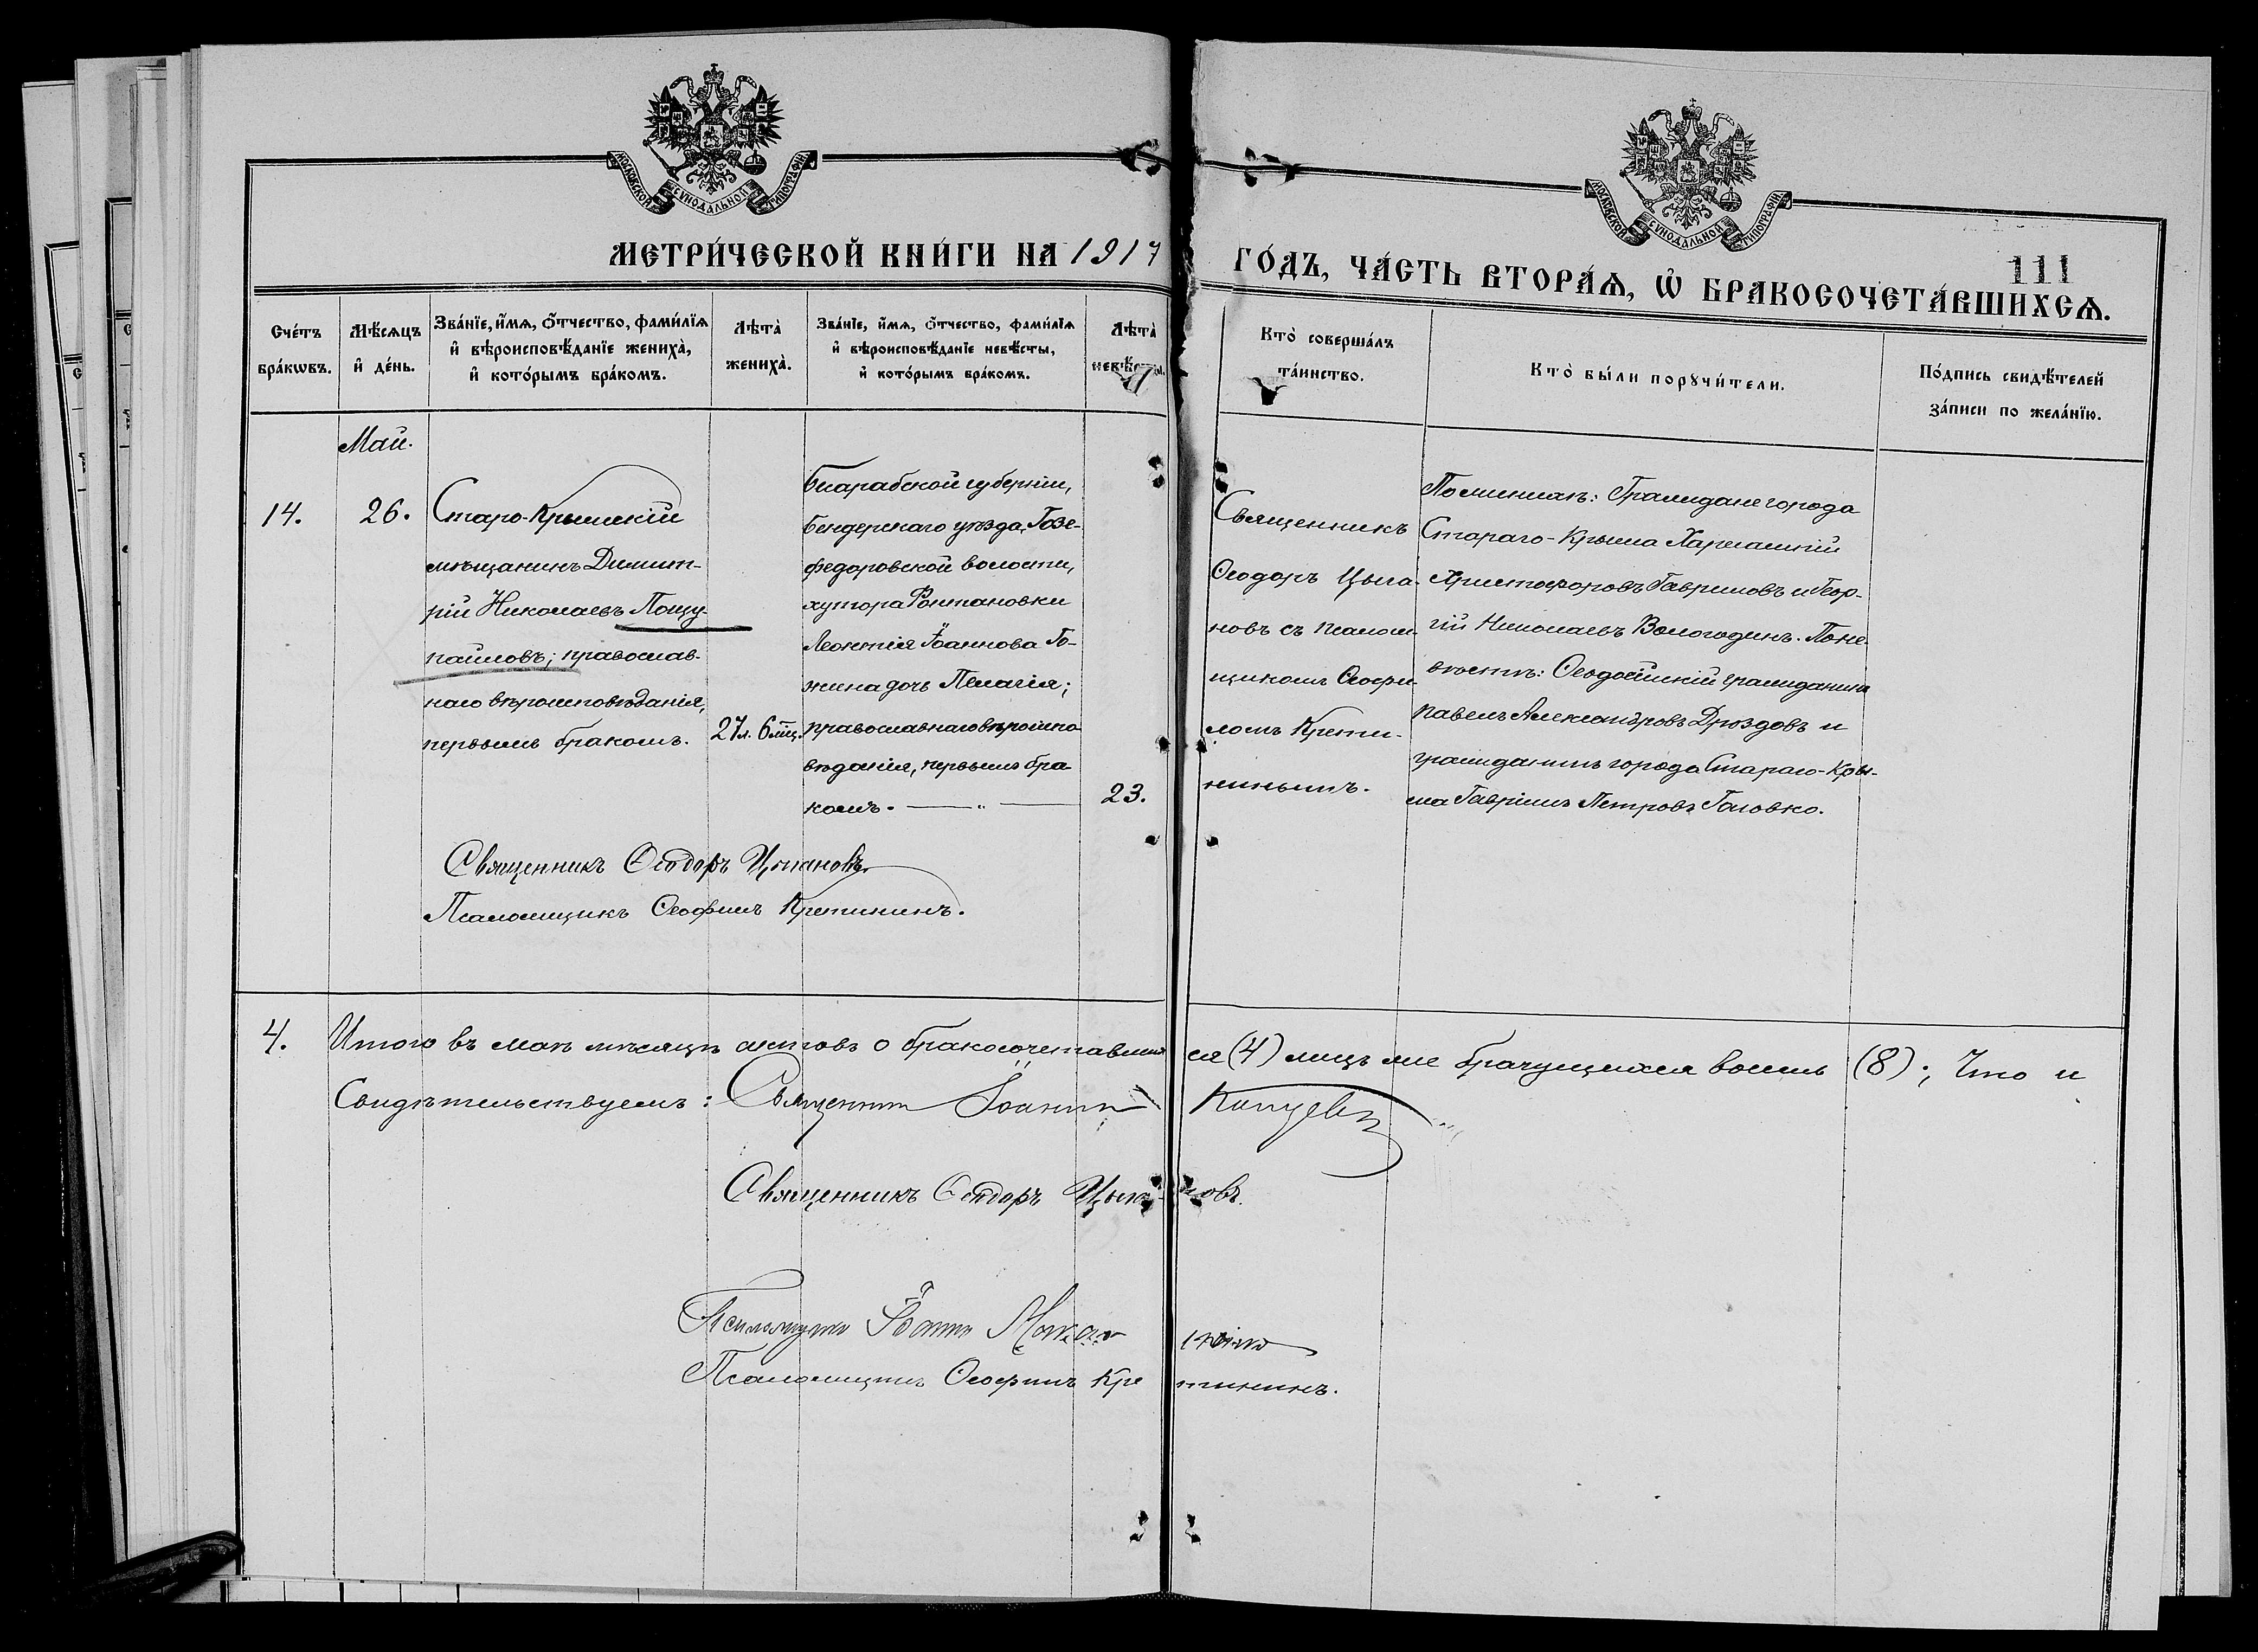 МОСКОВСКОЙ СѴНОДАЛЬНОЙ ТИПОГРАФІИ
МОСКОВСКОЙ СѴНОДАЛЬНОЙ ТИПОГРАФІИ
МЕТРИ́ЧЕСКОЙ КНИ́ГИ НА 1917
ГО́ДЪ, ЧА́СТЬ ВТОРА́Ѧ, Ѡ҆ БРАКОСОЧЕТА́ВШИХСѦ.
111
Сче́тъ бра́кѡвъ.
Мѣ́сѧцъ и҆ де́нь.
Зва́нїе, и҆́мѧ, ѻ҆́тчество, фами́лїѧ
и҆ вѣроисповѣ́данїе жениха̀,
и҆ кото́рымъ бра́комъ.
Лѣта̀ жениха̀.
Зва́нїе, и҆́мѧ, ѻ҆́тчество, фами́лїѧ
и҆ вѣроисповѣ́данїе невѣ́сты,
и҆ кото́рымъ бра́комъ.
Лѣта̀ невѣ́сты.
Кто̀ соверша́лъ
та́инство.
Кто̀ бы́ли порꙋчи́тели.
По́дпись свидѣ́телей
за́писи по жела́нїю.
Май.
14.
26.
Старо-Крымскій
мѣщанинъ Димит-
рій Николаевъ Пощу-
пайловъ; православ-
наго вѣроисповѣданія,
первымъ бракомъ.
27 л. 6 мѣс.
Бесарабской губерніи,
Бендерскаго уѣзда,
федоровской волости,
хутора Фонтановки
Леонтія Іоаннова Го-
жина дочь Пелагія;
православнаго вѣроиспо-
вѣданія, первымъ бра-
комъ. — „ —
23.
Священникъ
Ѳеодоръ Цыга-
новъ съ псалом-
щикомъ Ѳеофи-
ломъ Крети-
нинымъ.
По женихѣ: Граждане города
Стараго-Крыма Харлампій
Христофоровъ Гавриловъ и Геор-
гій Николаевъ Вологодинъ. По не-
вѣстѣ: Ѳеодосійскій гражданинъ
Павелъ Александровъ Дроздовъ и
гражданинъ города Стараго-Кры-
ма Гавріилъ Петровъ Головко.
Священникъ Ѳеодоръ Цыгановъ.
Псаломщикъ Ѳеофилъ Кретининъ.
4.
Итого въ маѣ мѣсяцѣ актовъ о бракосочетавших ся (4) лицъ же брачущихся восемь (8); Что и
Свидѣтельствуемъ: Священникъ Іоаннъ
Священникъ Ѳеодоръ Цыгановъ.
Псаломщикъ Іоаннъ
Псаломщикъ Ѳеофилъ Кре тининъ.